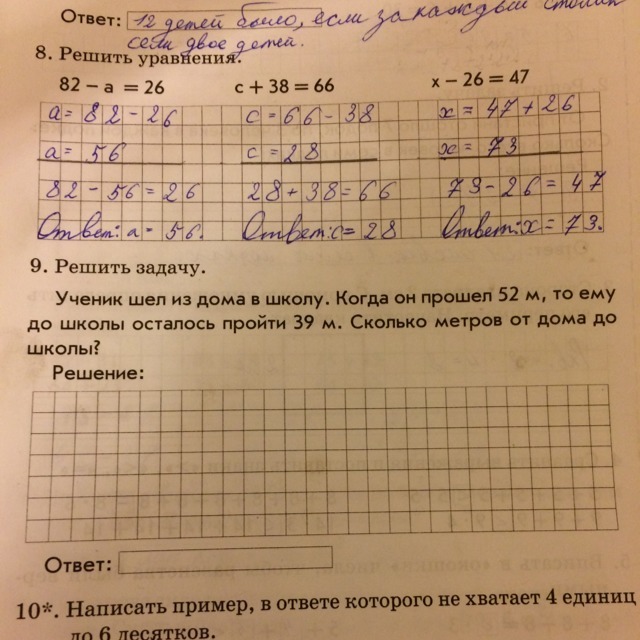 Ответ: 12 детей было, если за каждый столик
сели двое детей.
8. Решить уравнения.
82 – а = 26 с + 38 = 66 х – 26 = 47
а = 82 - 26 с = 66 - 38 х = 47 + 26
а = 56 с = 28 х = 73
82 - 56 = 26 28 + 38 = 66 73 - 26 = 47
Ответ: а = 56. Ответ: с = 28 Ответ: х = 73.
9. Решить задачу.
Ученик шел из дома в школу. Когда он прошел 52 м, то ему
до школы осталось пройти 39 м. Сколько метров от дома до
школы?
Решение:
Ответ:
10*. Написать пример, в ответе которого не хватает 4 единиц
до 6 десятков.